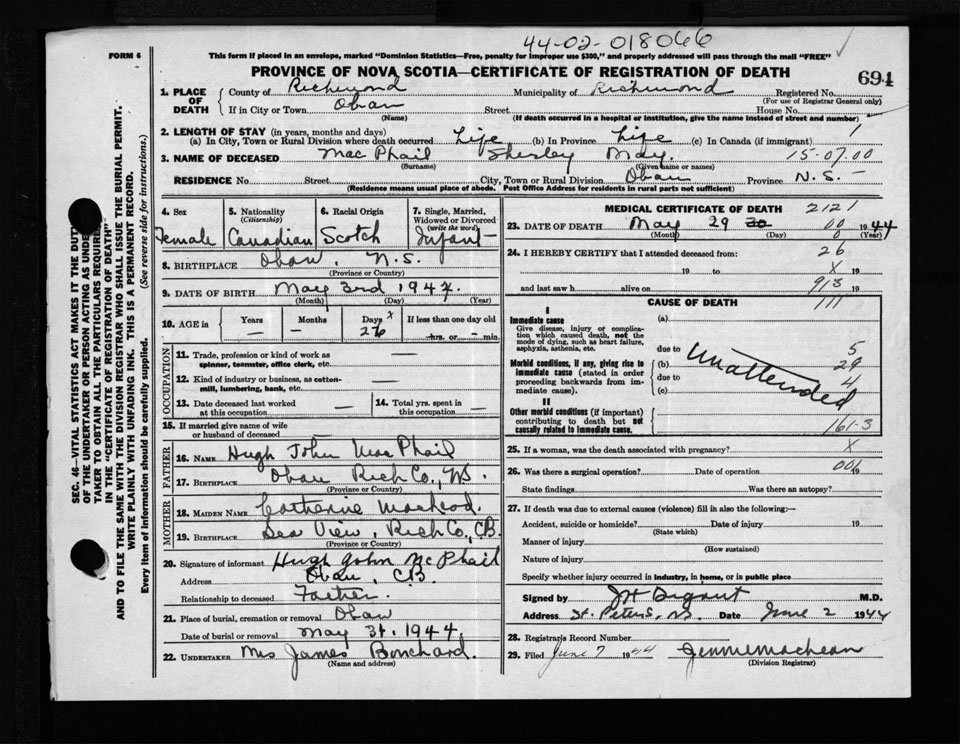 44-02-018066
FORM 6
This form if placed in an envelope, marked "Dominion Statistics—Free, penalty for improper use $300," and properly addressed will pass through the mail "FREE"
PROVINCE OF NOVA SCOTIA—CERTIFICATE OF REGISTRATION OF DEATH
694
SEC. 46—VITAL STATISTICS ACT MAKES IT THE DUTY
OF THE UNDERTAKER OR PERSON ACTING AS UNDER
TAKER TO OBTAIN ALL THE PARTICULARS REQUIRED
IN THE "CERTIFICATE OF REGISTRATION OF DEATH"
AND TO FILE THE SAME WITH THE DIVISION REGISTRAR WHO SHALL ISSUE THE BURIAL PERMIT.
WRITE PLAINLY WITH UNFADING INK. THIS IS A PERMANENT RECORD.
Every item of Information should be carefully supplied. (See reverse side for instructions.)
1. PLACE OF DEATH
County of Richmond Municipality of Richmond Registered No.
(For use of Registrar General only)
If in City or Town Oban Street House No.
(Name) (If death occurred in a hospital or institution, give the name instead of street and number)
2. LENGTH OF STAY (in years, months and days)
(a) In City, Town or Rural Division where death occurred Life (b) In Province Life (c) In Canada (if immigrant)
3. NAME OF DECEASED Mac Phail Shirley May 15-07.00
(Surname) (Given name or names)
RESIDENCE No. Street City, Town or Rural Division Oban Province N.S.
(Residence means usual place of abode. Post Office Address for residents in rural parts not sufficient)
4. Sex Female
5. Nationality (Citizenship) Canadian
6. Racial Origin Scotch
7. Single, Married, Widowed or Divorced (write the word) Infant
8. BIRTHPLACE Oban, N.S.
(Province or Country)
9. DATE OF BIRTH May 3rd 1944
(Month) (Day) (Year)
10. AGE in Years — Months — Days x 26 If less than one day old — hrs. or — min.
OCCUPATION
11. Trade, profession or kind of work as spinner, teamster, office clerk, etc. —
12. Kind of industry or business, as cotton-mill, lumbering, bank, etc. —
13. Date deceased last worked at this occupation —
14. Total yrs. spent in this occupation —
15. If married give name of wife or husband of deceased
FATHER
16. NAME Hugh John Mac Phail
17. BIRTHPLACE Oban Rich Co., N.S.
(Province or Country)
MOTHER
18. MAIDEN NAME Catherine MacLeod
19. BIRTHPLACE Sea View, Rich Co., C.B.
(Province or Country)
20. Signature of informant Hugh John McPhail
Address Oban, C.B.
Relationship to deceased Father.
21. Place of burial, cremation or removal Oban
Date of burial or removal May 31. 1944
22. UNDERTAKER Mrs James Bouchard.
(Name and address)
MEDICAL CERTIFICATE OF DEATH 2121
23. DATE OF DEATH May 29 30 00 1944
(Month) (Day) 0 (Year)
24. I HEREBY CERTIFY that I attended deceased from: 26
19 to X 19
and last saw h alive on 913 19
CAUSE OF DEATH 111
I
Immediate cause (a)
Give disease, injury or complication which caused death, not the mode of dying, such as heart failure, asphyxia, asthenia, etc.
due to 5
Morbid conditions, if any, giving rise to immediate cause (stated in order proceeding backwards from immediate cause).
(b) 29
due to 4
(c)
Unattended
II
Other morbid conditions (if important) contributing to death but not causally related to immediate cause.
161-3
25. If a woman, was the death associated with pregnancy? X
26. Was there a surgical operation? Date of operation 00 19
State findings Was there an autopsy?
27. If death was due to external causes (violence) fill in also the following:—
Accident, suicide or homicide? Date of injury 19
(State which)
Manner of injury
(How sustained)
Nature of injury
Specify whether injury occurred in industry, in home, or in public place
Signed by M.D.
Address St. Peters, N.S. Date June 2 1944
28. Registrar's Record Number
29. Filed June 7 1944 Jennie MacLean
(Division Registrar)